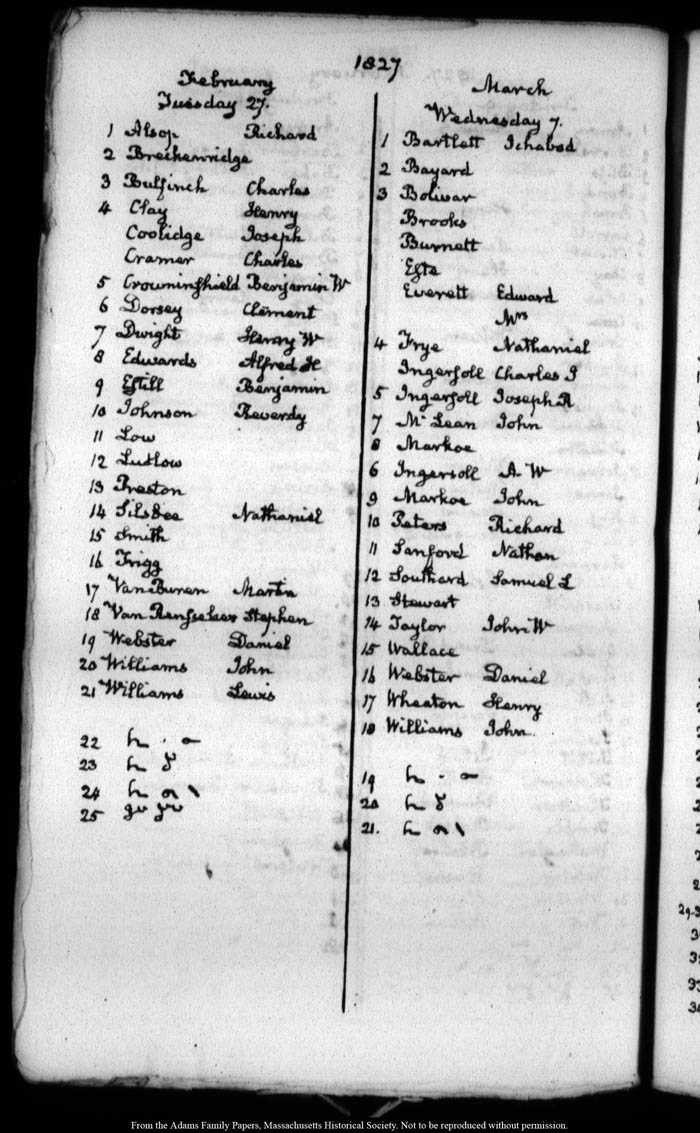 1827
February
Tuesday 27.
1 Alsop Richard
2 Breckenridge
3 Bulfinch Charles
4 Clay Henry
Coolidge Joseph
Cramer Charles
5 Crowninshield Benjamin W
6 Dorsey Clement
7 Dwight Henry W
8 Edwards Alfred H
9 Estill Benjamin
10 Johnson Reverdy
11 Low
12 Ludlow
13 Preston
14 Silsbee Nathaniel
15 Smith
16 Trigg
17 Van Buren Martin
18 Van Rensselaer Stephen
19 Webster Daniel
20 Williams John
21 Williams Lewis
22
23
24
25
March
Wednesday 7.
1 Bartlett Ichabod
2 Bayard
3 Bolivar
Brooks
Burnett
Este
Everett Edward
Mrs
4 Frye Nathaniel
Ingersoll Charles J
5 Ingersoll Joseph R
7 McLean John
8 Markoe
6 Ingersoll A. W
9 Markoe John
10 Peters Richard
11 Sanford Nathan
12 Southard Samuel L
13 Stewart
14 Taylor John W
15 Wallace
16 Webster Daniel
17 Wheaton Henry
18 Williams John
19
20
21.
29
3
3
33
34
From the Adams Family Papers, Massachusetts Historical Society. Not to be reproduced without permission.